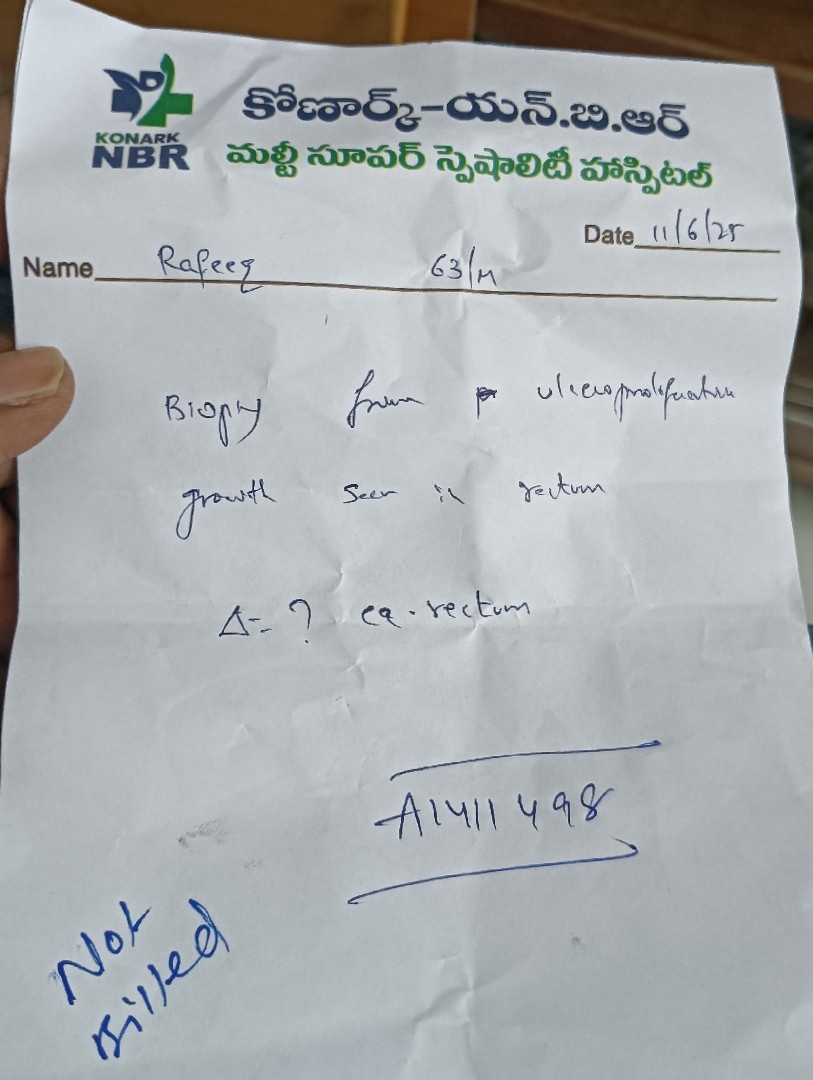 KONARK
NBR
కోణార్క్-యన్.బి.ఆర్
మల్టీ సూపర్ స్పెషాలిటీ హాస్పిటల్
Date 11/6/25
Name Rafeeq 63/M
Biopsy from ulceroproliferative
growth seen in rectum
Δ= ? ca. rectum
A1411498
Not
Billed